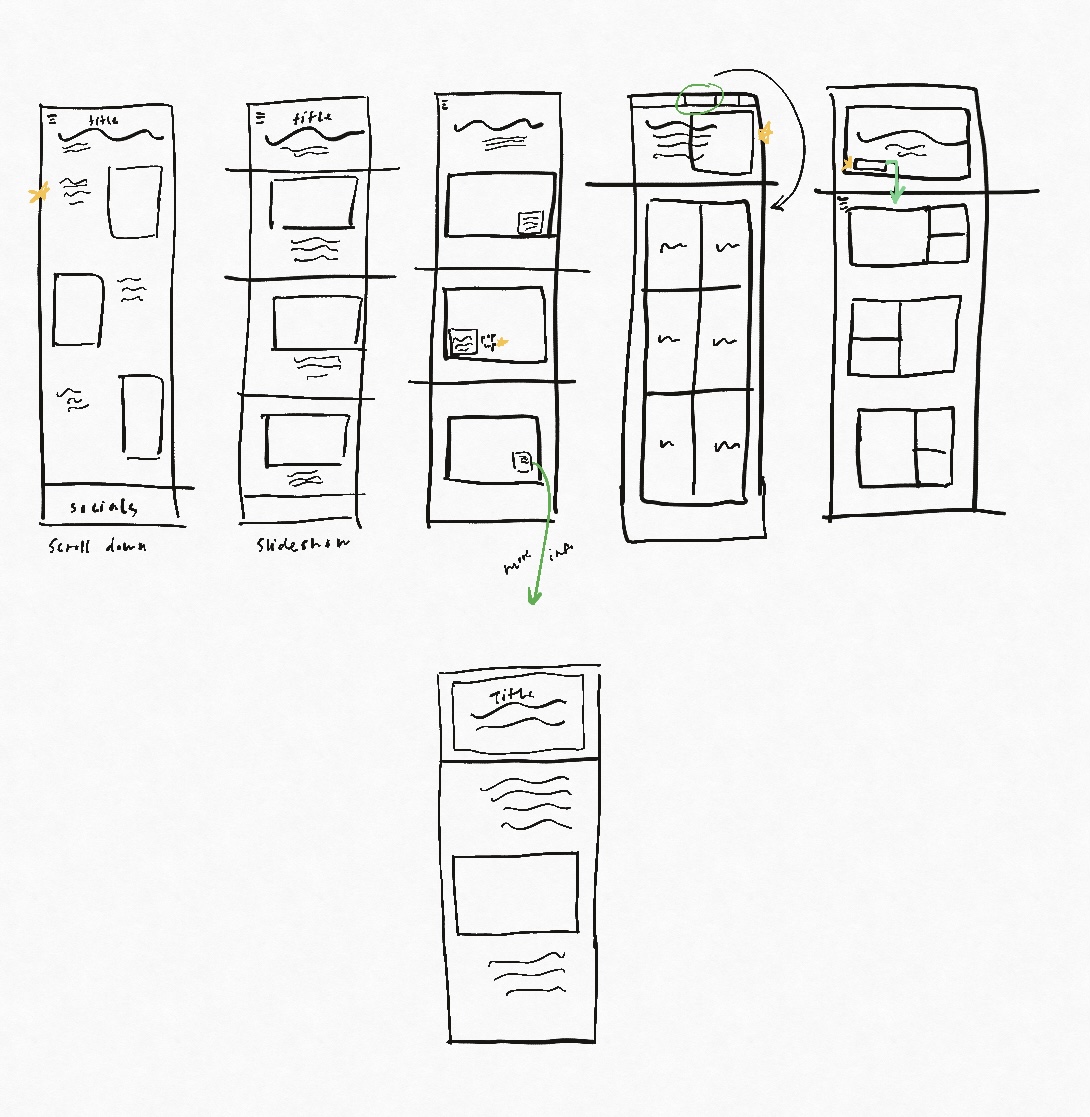 title
socials
Scroll down
title
Slideshow
pop
up
more info
Title